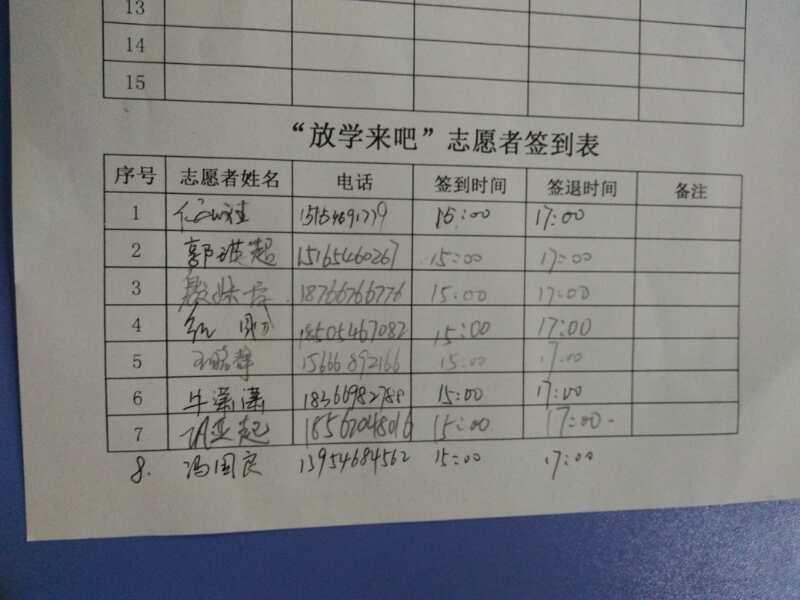 13
14
15
“放学来吧”志愿者签到表
序号 志愿者姓名 电话 签到时间 签退时间 备注
1 15:00 17:00
2 郭琪超 15165460267 15:00 17:00
3 18766766776 15:00 17:00
4 18505467082 15:00 17:00
5 15666892166 15:00 17:00
6 牛潇潇 18366982788 15:00 17:00
7 18562048016 15:00 17:00
8. 冯国良 13954684562 15:00 17:00